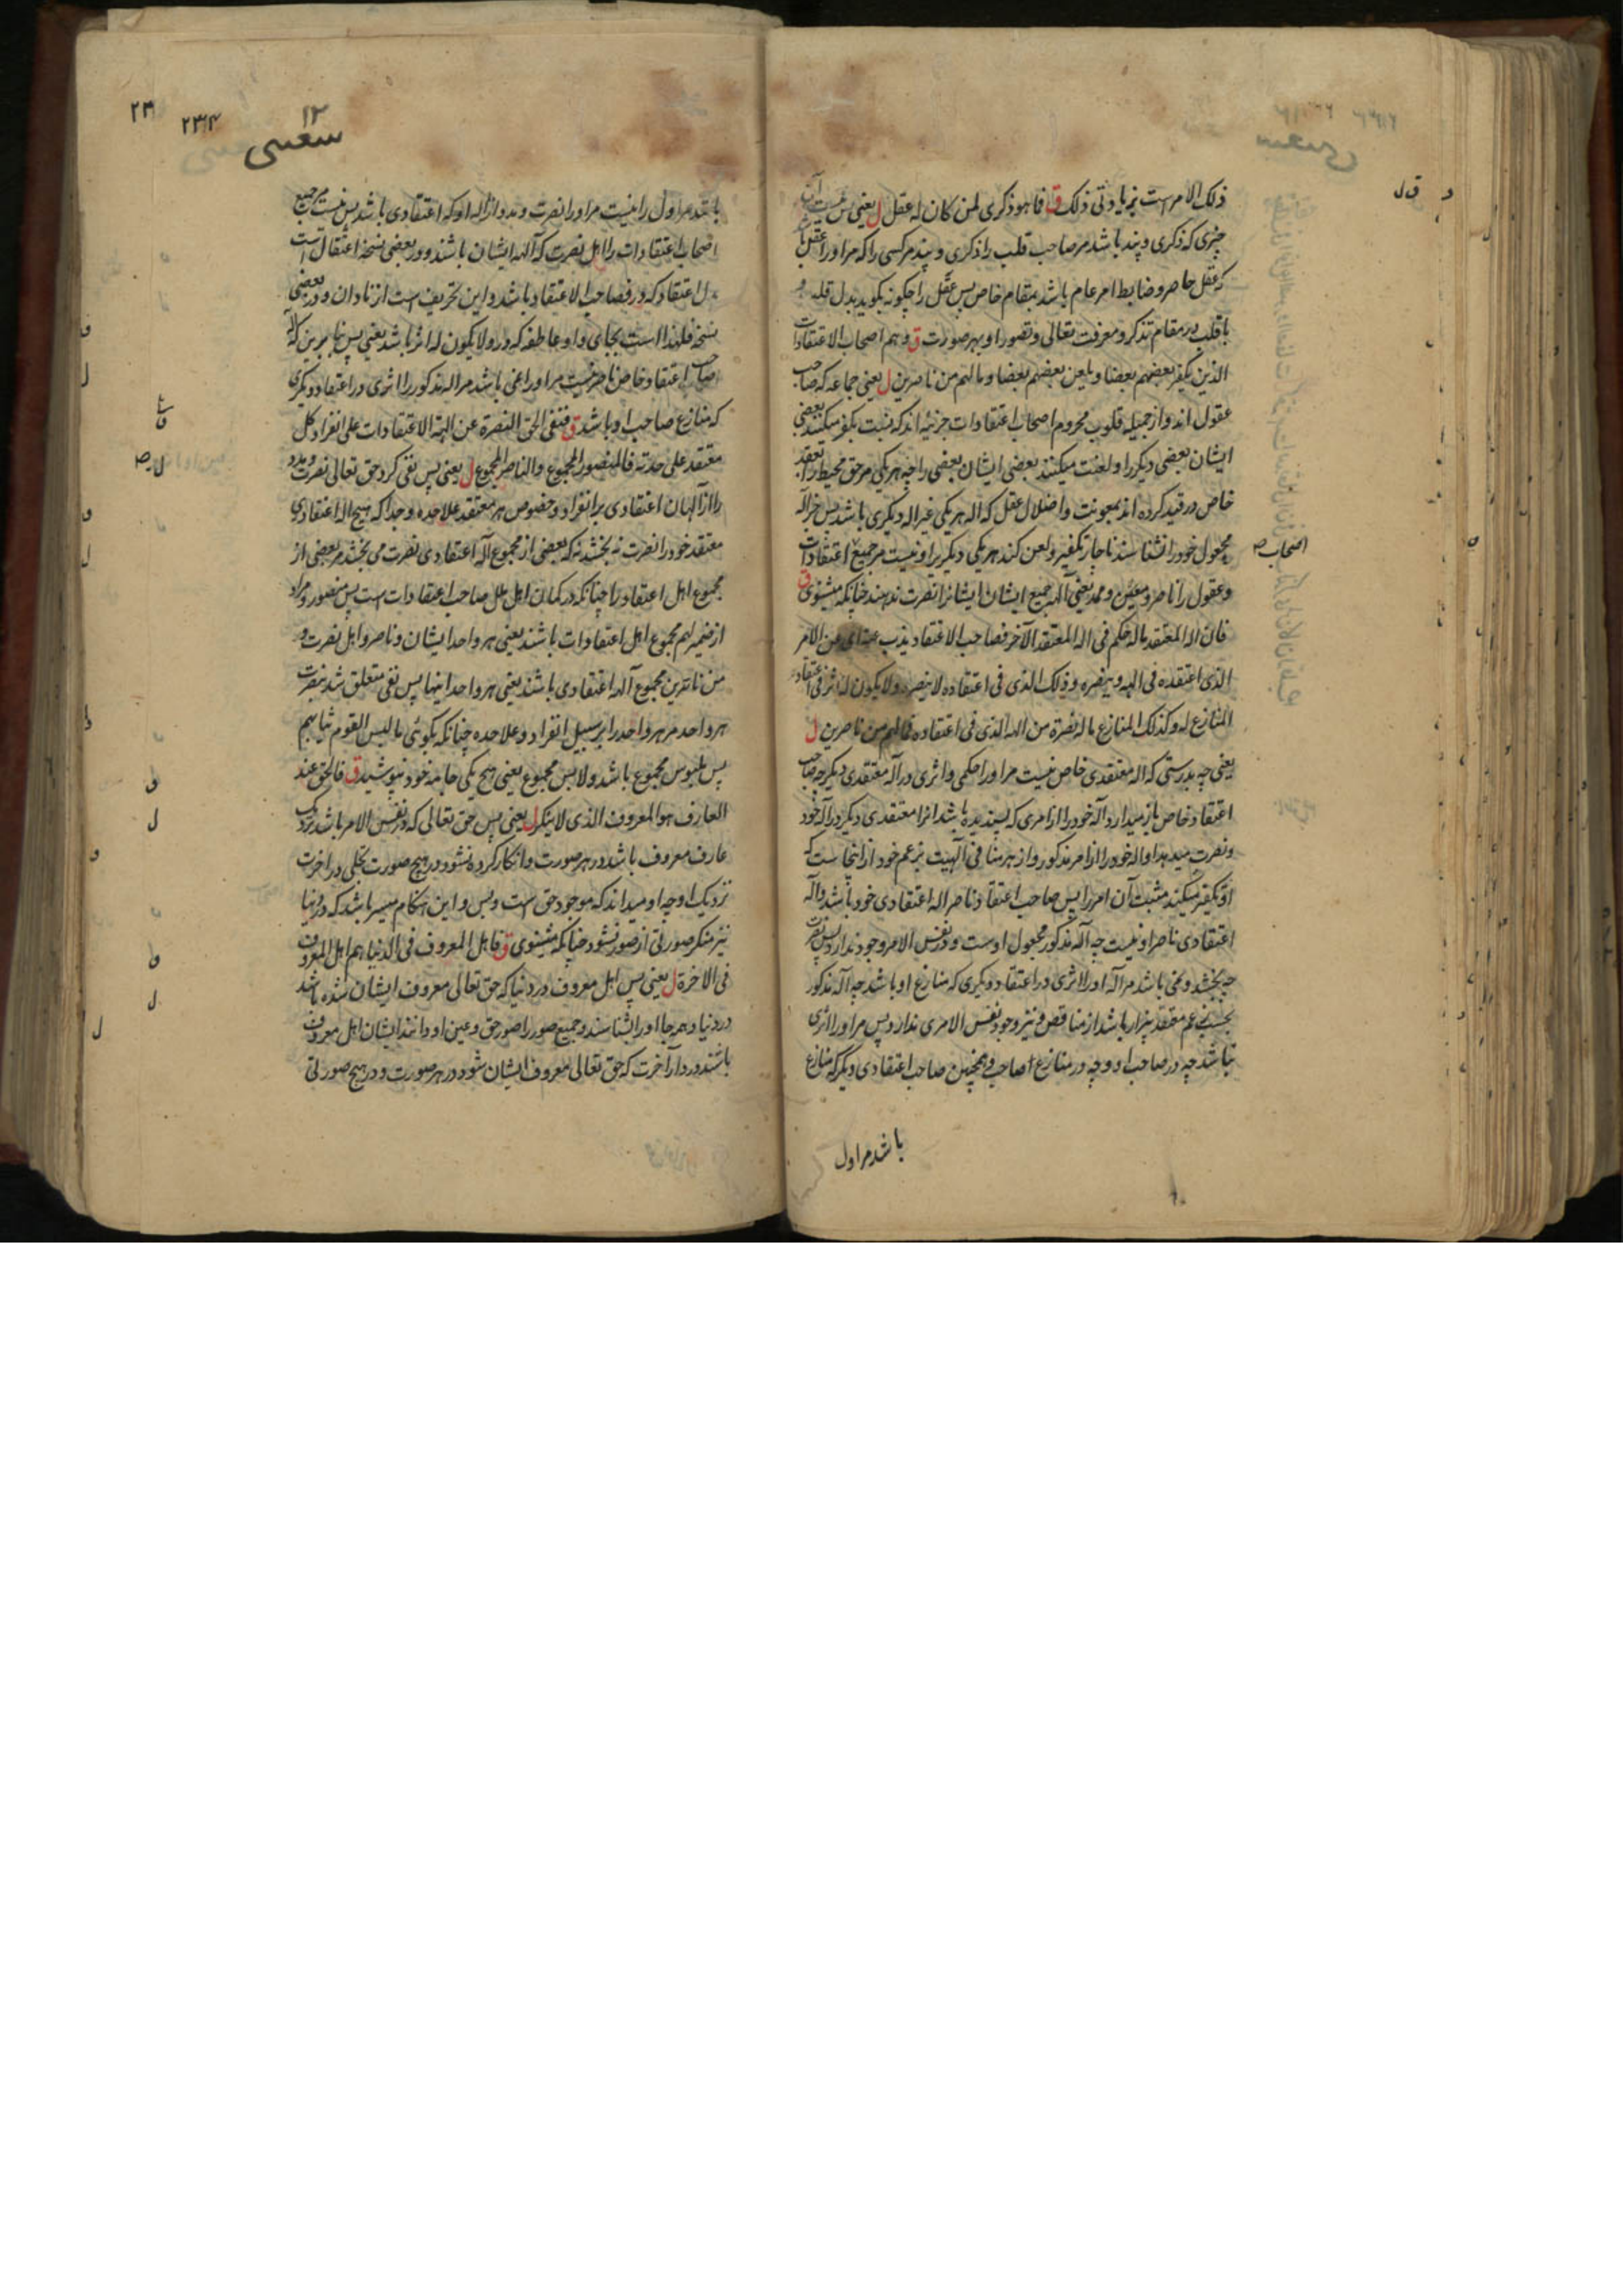 ذلک الامر است پزیادتی ذلک ق فما هو ذکری لمن کان له عقل ل یعنی پس نیست آن
چیزی که ذکری و پند باشد مر صاحب قلب را ذکری و پند مر کسی را که مر او را عقل باشد
که عقل حاصر و ضابط امر عام باشد بمقام خاص پس عقل را چگونه بگوید بدل قلب و
با قلب در مقام تذکر و معرفت تعالی و تصور او بهر صورت ق و هم اصحاب الاعتقادات
الذین یکفر بعضهم بعضا و یلعن بعضهم بعضا و ما لهم من ناصرین ل یعنی جماعه که صاحب
عقول اند و از جمیله قلوب محروم اصحاب اعتقادات جزئیه اند که نسبت بکفر میکنند بعضی
ایشان بعضی دیگر را و لعنت میکنند بعضی ایشان بعضی را چه هر یکی مر حق محیط را بعقد
خاص در قید کرده اند بمعونت و اضلال عقل که اله هر یکی غیر اله دیگری باشد پس جز آله
مجعول خود را نشناسند ناچار تکفیر و لعن کند هر یکی دیگریرا و نیست مر جمیع اعتقادات
اصحاب صح
و عقول را ناصر و معین و ممد یعنی آلهه جمیع ایشان ایشانرا نصرت ندهند چنانکه میشنوی ق
فان اله المعتقد ماله حکم فی اله المعتقد الآخر فصاحب الاعتقاد یذب عنه ای عن الامر
الذی اعتقده فی الهه و ینصره و ذلک الذی فی اعتقاده لا ینصره و لا یکون له اثر فی اعتقاد
المنازع له و کذلک المنازع ماله نصرة من الهه الذی فی اعتقاده فما لهم من ناصرین ل
یعنی چه بدرستی که اله معتقدی خاص نیست مر او را حکمی و اثری در آله معتقدی دیگر چه صاحب
اعتقاد خاص باز میدارد آله خود را از امری که پسندیده باشد انرا معتقدی دیگر در آله خود
و نصرت میدهد او اله خود را از امر مذکور و از هر منافی آلهیت بزعم خود از اینجاست که
او تکفیر میکند مثبت آن امر را پس صاحب اعتقاد ناصر اله اعتقادی خود باشد و آله
اعتقادی ناصر او نیست چه آله مذکور مجعول اوست و در نفس الامر وجود ندارد پس نصرت
چه بخشد و نمی باشد مر آله او را اثری در اعتقاد دیگری که منازع او باشد چه آله مذکور
بحسب زعم معتقد بیزار باشد از مناقض و نیز وجود نفس الامری ندارد پس مر او را اثری
نباشد چه در صاحب او و چه در منازع صاحب و همچنین صاحب اعتقادی دیگر که منازع
باشد مر اول
۱۲
سعیی
۲۳۴
باشد مر اول را نیست مر او را نصرت و مدد از اله او که اعتقادی باشد پس نیست مر جمیع
اصحاب اعتقادات را اهل نصرت که آلهه ایشان باشند و در بعضی نسخه اعتقال است
بدل اعتقاد که در فصاحب الاعتقاد باشد و این تحریف است از نادان و در بعضی
نسخه فلهذا است بجای واو عاطفه که در و لا یکون له اثر باشد یعنی پس بنا برین که آله
صاحب اعتقاد خاص ناصر نیست مر او را نمی باشد مر اله مذکور را اثری در اعتقاد دیگری
که منازع صاحب او باشد ق فنفی الحق النصرة عن الهة الاعتقادات علی انفراد کل
معتقد علی حدته فالمنصور المجموع و الناصر المجموع ل یعنی پس نفی کرد حق تعالی نصرت و مدد
را از آلهان اعتقادی بر انفراد و خصوص هر معتقد علاحده و جدا که هیچ اله اعتقادی
معتقد خود را نصرت نه بخشد نه که بعضی از مجموع آله اعتقادی نصرت می بخشد مر بعضی از
مجموع اهل اعتقاد را چنانکه در کمان اهل ملل صاحب اعتقادات است پس منصور و مراد
از ضمیر لهم مجموع اهل اعتقادات باشند یعنی هر واحد ایشان و ناصر و اهل نصرت در
من ناصرین مجموع آلهه اعتقادی باشند یعنی هر واحد اینها پس نفی متعلق شد بنصرت
هر واحد مر هر واحد را بر سبیل انفراد و علاحده چنانکه بگوئی ما لبس القوم ثیابهم
پس ملبوس مجموع باشد و لابس مجموع یعنی هیچ یکی جامه خود نپوشید ق فالحق عند
العارف هو المعروف الذی لا ینکر ل یعنی پس حق تعالی که در نفس الامر باشد نزدیک
عارف معروف باشد در هر صورت و انکار کرده نشود در هیچ صورت تجلی در اخرت
نزدیک او چه او میداند که موجود حق است و بس و این هنکام میسر باشد که در دنیا
نیز منکر صورتی از صور نشود چنانکه میشنوی ق فاهل المعروف فی الدنیا هم اهل المعروف
فی الاخرة ل یعنی پس اهل معروف در دنیا که حق تعالی معروف ایشان شده باشد
در دنیا و همه جا او را شناسند و جمیع صور را صور حق و عین او دانند ایشان اهل معروف
باشند در دار آخرت که حق تعالی معروف ایشان شود در هر صورت و در هیچ صورتی